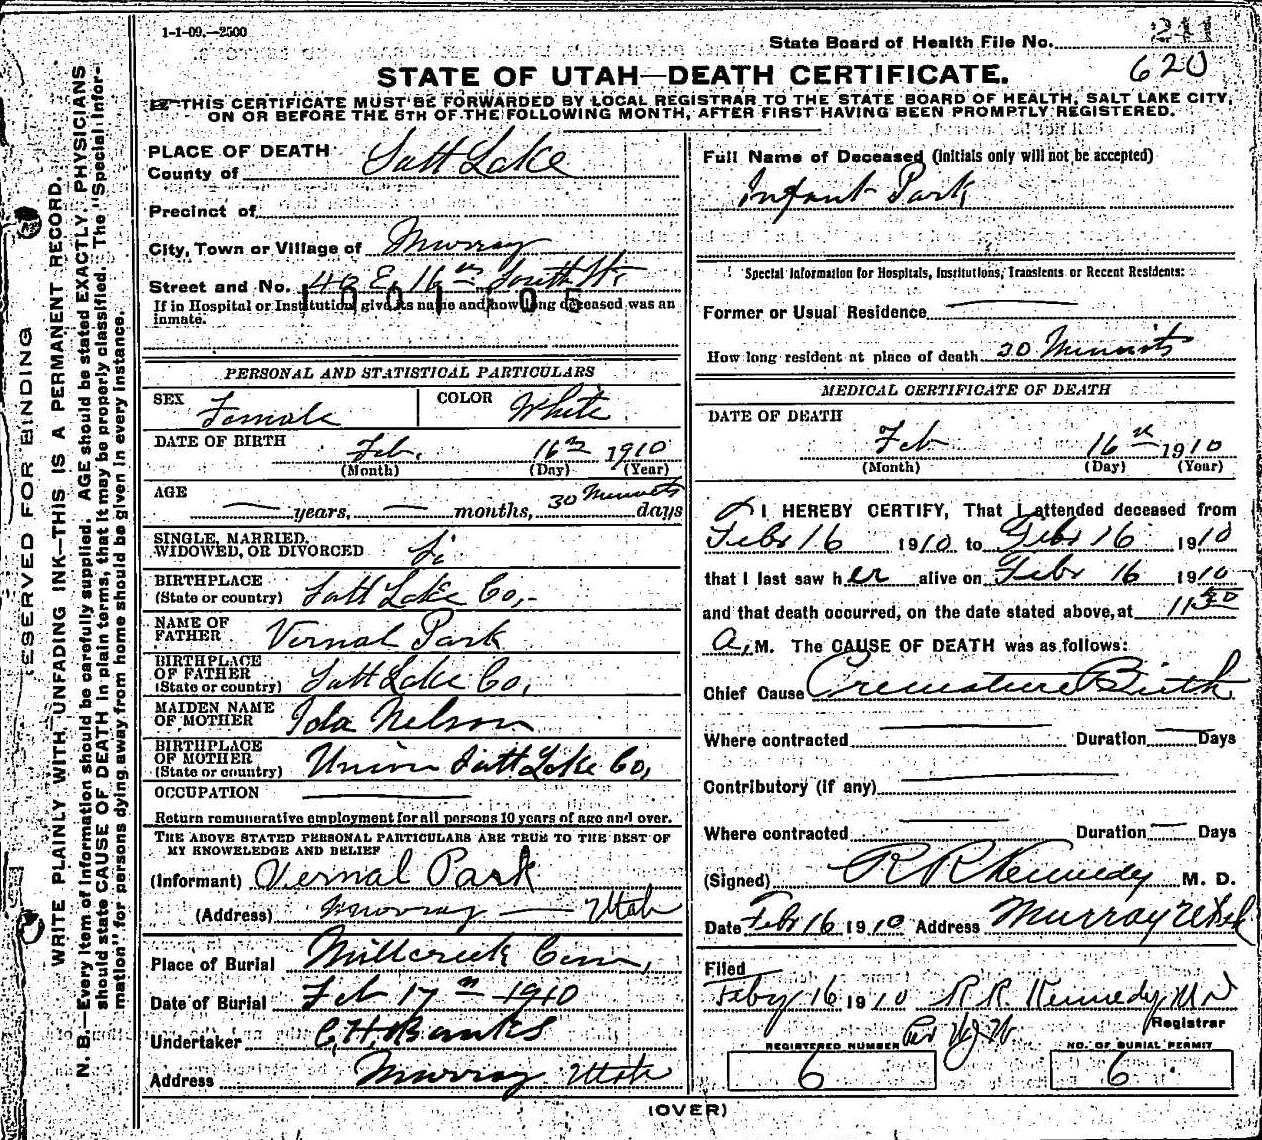 1-1-09.—2500
State Board of Health File No. 211
620
STATE OF UTAH—DEATH CERTIFICATE.
THIS CERTIFICATE MUST BE FORWARDED BY LOCAL REGISTRAR TO THE STATE BOARD OF HEALTH, SALT LAKE CITY,
ON OR BEFORE THE 5TH OF THE FOLLOWING MONTH, AFTER FIRST HAVING BEEN PROMPTLY REGISTERED.
RESERVED FOR BINDING
WRITE PLAINLY WITH UNFADING INK—THIS IS A PERMANENT RECORD.
N. B.—Every item of information should be carefully supplied. AGE should be stated EXACTLY. PHYSICIANS
should state CAUSE OF DEATH in plain terms, that it may be properly classified. The "Special Infor-
mation" for persons dying away from home should be given in every instance.
PLACE OF DEATH
County of Salt Lake
Precinct of
City, Town or Village of Murray
Street and No. E. 16th South St.
If in Hospital or Institution give its name and how long deceased was an
inmate.
PERSONAL AND STATISTICAL PARTICULARS
SEX Female COLOR White
DATE OF BIRTH Feb. 16th 1910
(Month) (Day) (Year)
AGE — years, — months, 30 Minuets days
SINGLE, MARRIED,
WIDOWED, OR DIVORCED Si
BIRTHPLACE
(State or country) Salt Lake Co,-
NAME OF
FATHER Vernal Park
BIRTHPLACE
OF FATHER
(State or country) Salt Lake Co,
MAIDEN NAME
OF MOTHER Ida Nelson
BIRTHPLACE
OF MOTHER
(State or country) Union Salt Lake Co,
OCCUPATION —
Return remunerative employment for all persons 10 years of age and over.
THE ABOVE STATED PERSONAL PARTICULARS ARE TRUE TO THE BEST OF
MY KNOWLEDGE AND BELIEF
(Informant) Vernal Park
(Address) Murray — Utah
Place of Burial Millcreek Cem,
Date of Burial Feb 17th 1910
Undertaker C.H. Banks
Address Murray Utah
Full Name of Deceased (Initials only will not be accepted)
Infant Park
Special Information for Hospitals, Institutions, Transients or Recent Residents:
Former or Usual Residence —
How long resident at place of death 30 Minuits
MEDICAL CERTIFICATE OF DEATH
DATE OF DEATH
Feb 16th 1910
(Month) (Day) (Year)
I HEREBY CERTIFY, That I attended deceased from
Febr 16 1910 to Febr 16 1910
that I last saw her alive on Febr 16 1910
and that death occurred, on the date stated above, at 11 30
a, M. The CAUSE OF DEATH was as follows:
Chief Cause Premature Birth
Where contracted — Duration — Days
Contributory (if any) —
Where contracted — Duration — Days
(Signed) R R Kennedy M. D.
Date Feb 16 1910 Address Murray Utah
Filed
Feby 16 1910 R R. Kennedy MD
Registrar
Per
REGISTERED NUMBER
6
NO. OF BURIAL PERMIT
6
(OVER)